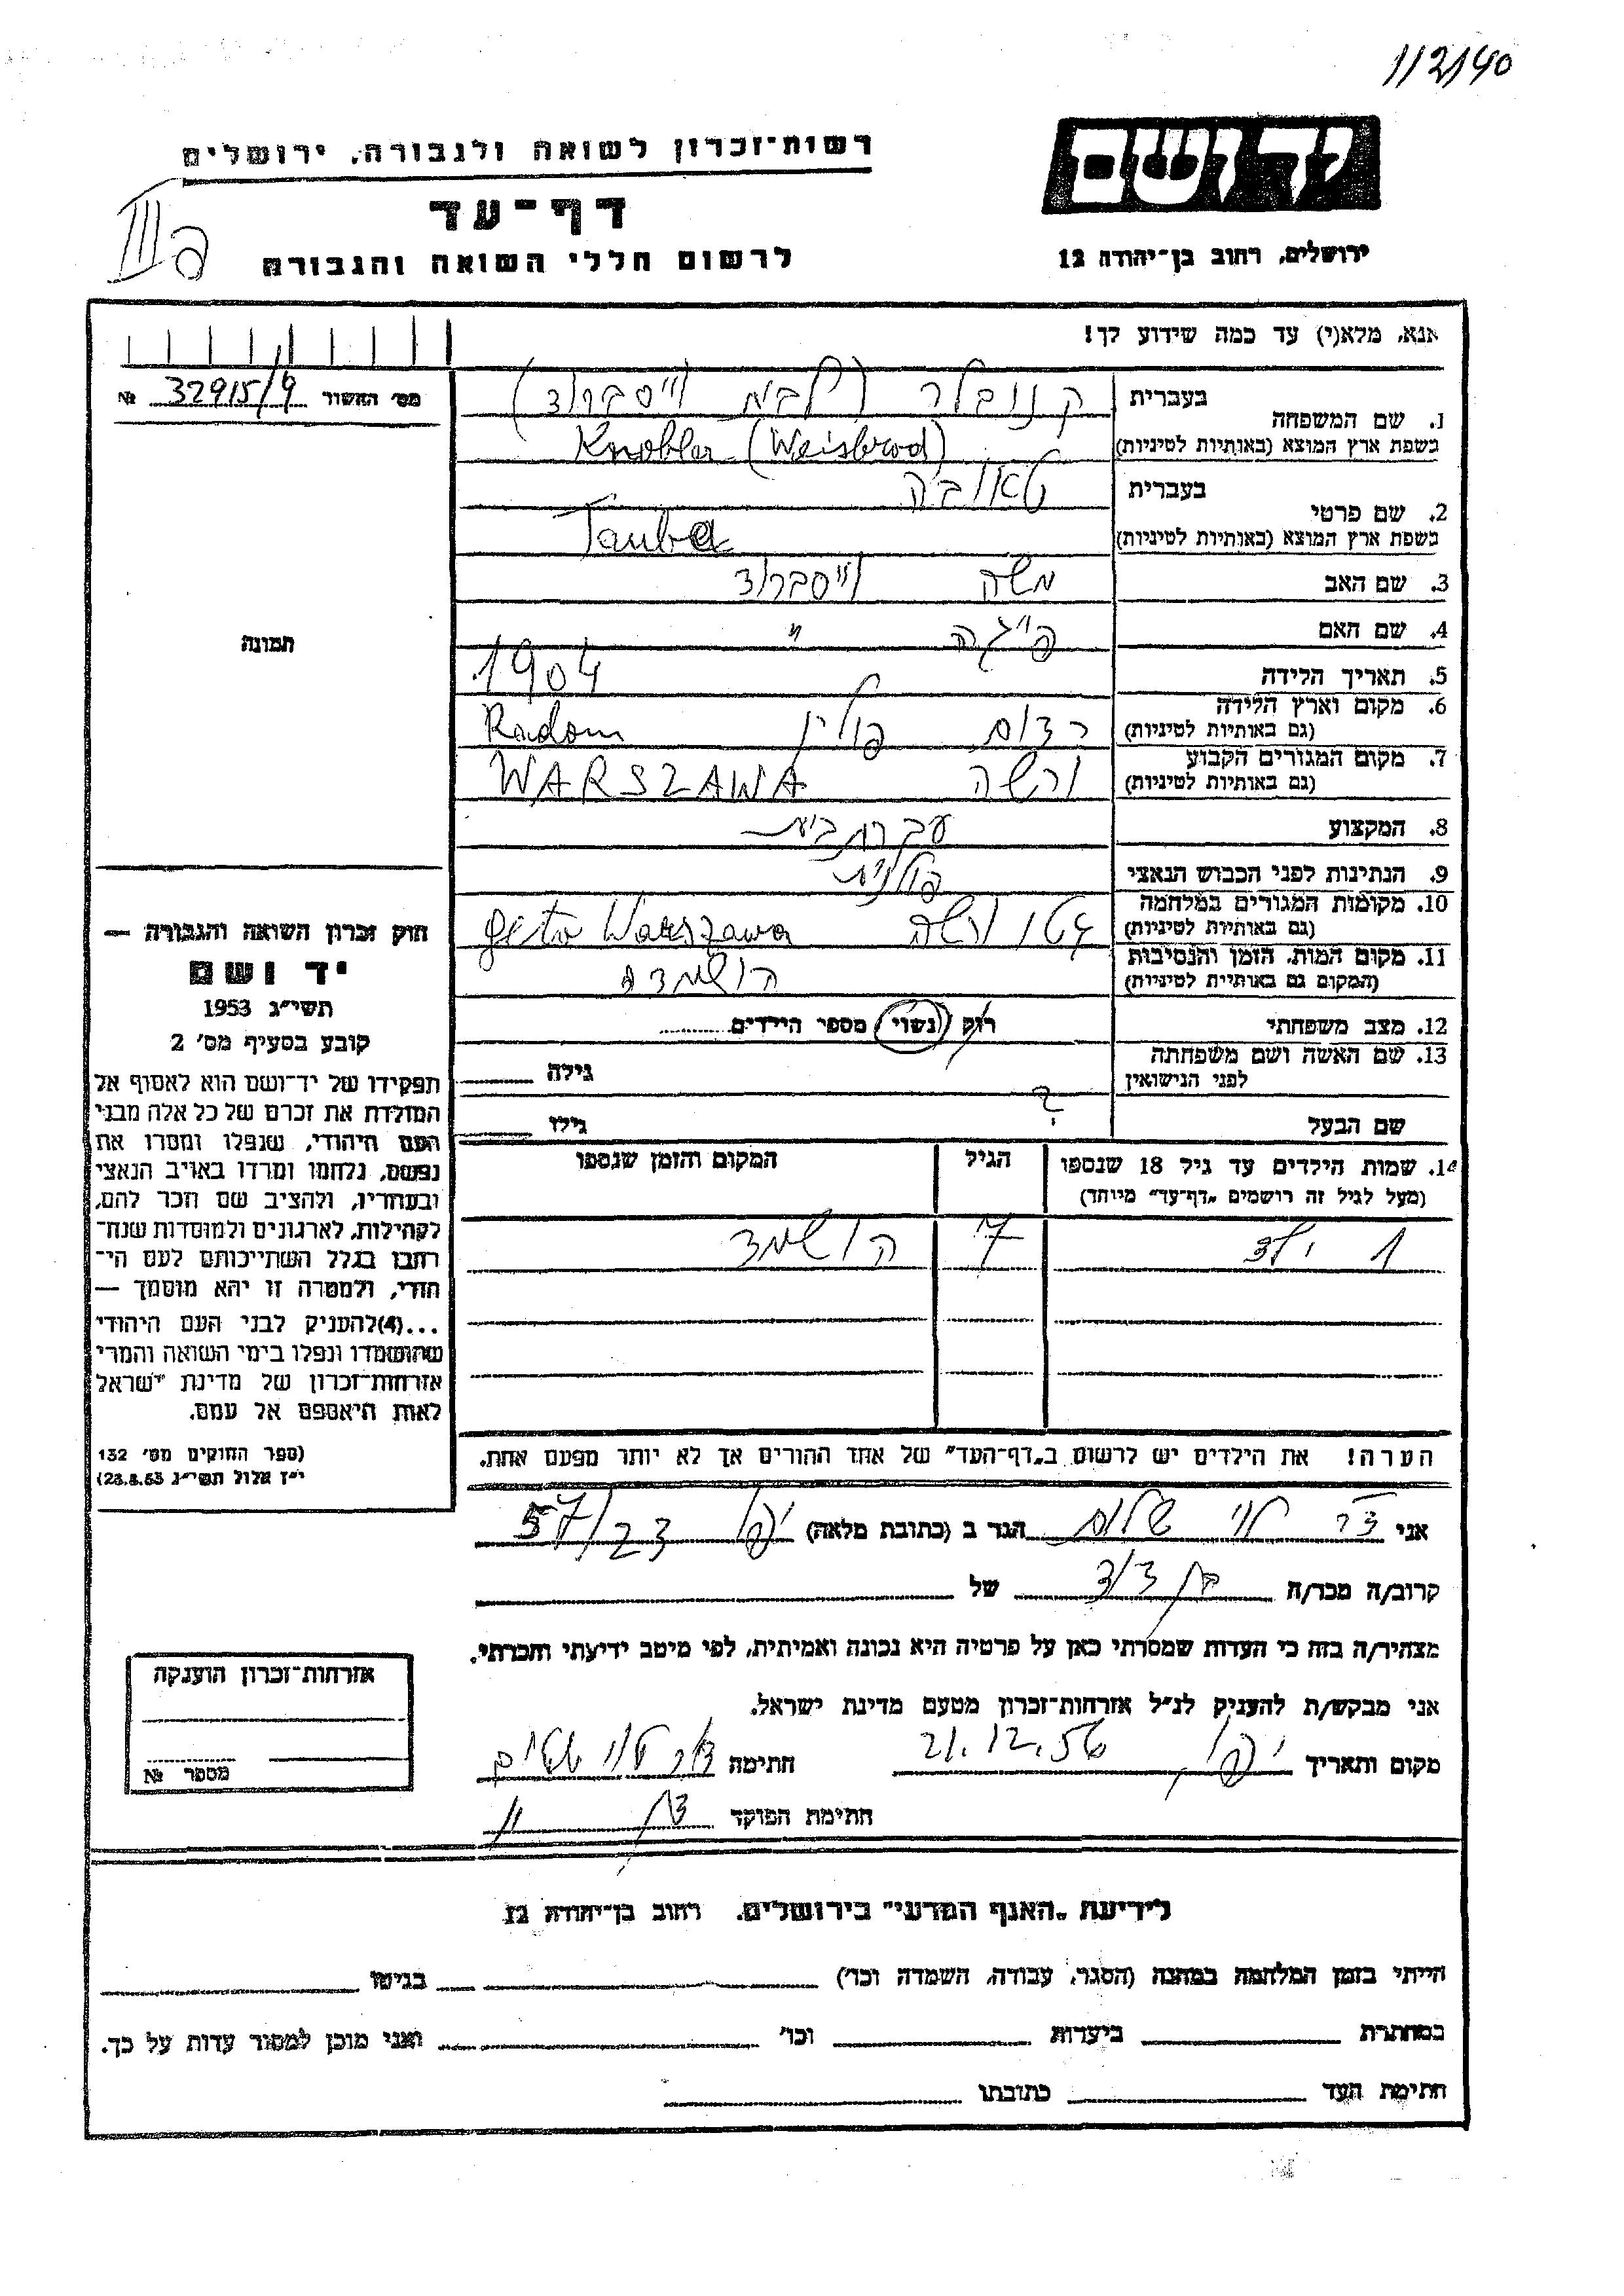 112140
יד ושם
רשות־זכרון לשואה ולגבורה, ירושלים
דף־עד
לרשום חללי השואה והגבורה
ירושלים, רחוב בן־יהודה 12
אנא, מלא(י) עד כמה שידוע לך!
מס׳ האשור 32915/9 №
1. שם המשפחה
בעברית קנובלר (לבית וייסברוד)
בשפת ארץ המוצא (באותיות לטיניות) Knobler (Weisbrod)
2. שם פרטי
בעברית טאובה
בשפת ארץ המוצא (באותיות לטיניות) Tauba
3. שם האב משה וייסברוד
4. שם האם פייגה "
5. תאריך הלידה 1904
6. מקום וארץ הלידה רדום פולין Radom
(גם באותיות לטיניות)
7. מקום המגורים הקבוע ורשה WARSZAWA
(גם באותיות לטיניות)
8. המקצוע עקרת בית
9. הנתינות לפני הכבוש הנאצי פולנית
10. מקומות המגורים במלחמה גטו ורשה geto Warszawa
(גם באותיות לטיניות)
11. מקום המות, הזמן והנסיבות הושמדה
(המקום גם באותיות לטיניות)
12. מצב משפחתי רוק/נשוי/ מספר הילדים
13. שם האשה ושם משפחתה גילה
לפני הנישואין
שם הבעל ? גילו
14. שמות הילדים עד גיל 18 שנספו הגיל המקום והזמן שנספו
(מעל לגיל זה רושמים „דף־עד” מיוחד)
1 ילד 7 הושמד
הערה! את הילדים יש לרשום ב„דף־העד” של אחד ההורים אך לא יותר מפעם אחת.
תמונה
חוק זכרון השואה והגבורה —
יד ושם
תשי״ג 1953
קובע בסעיף מס׳ 2
תפקידו של יד־ושם הוא לאסוף אל
המולדת את זכרם של כל אלה מבני
העם היהודי, שנפלו ומסרו את
נפשם, נלחמו ומרדו באויב הנאצי
ובעוזריו, ולהציב שם וזכר להם,
לקהילות, לארגונים ולמוסדות שנח־
רחבו בגלל השתייכותם לעם הי־
הודי, ולמטרה זו יהא מוסמך —
...(4)להעניק לבני העם היהודי
שהושמדו ונפלו בימי השואה והמרי
אזרחות־זכרון של מדינת ישראל
לאות היאספם אל עמם.
(ספר החוקים מס׳ 132
י״ז אלול תשי״ג 28.8.53)
אני שלום הגר ב (כתובת מלאה) יפו 57/23
קרוב/ה מכר/ה בן דוד של
מצהיר/ה בזה כי העדות שמסרתי כאן על פרטיה היא נכונה ואמיתית, לפי מיטב ידיעתי והכרתי.
אני מבקש/ת להעניק לנ״ל אזרחות־זכרון מטעם מדינת ישראל.
מקום ותאריך יפו 21.12.56 חתימה
חתימת הפוקד
אזרחות־זכרון הוענקה
מספר №
לידיעת „האגף המדעי” בירושלים, רחוב בן־יהודה 12
הייתי בזמן המלחמה במחנה (הסגר, עבודה, השמדה וכו׳) בגיטו
במחתרת ביערות וכו׳ ואני מוכן למסור עדות על כך.
חתימת העד כתובתו